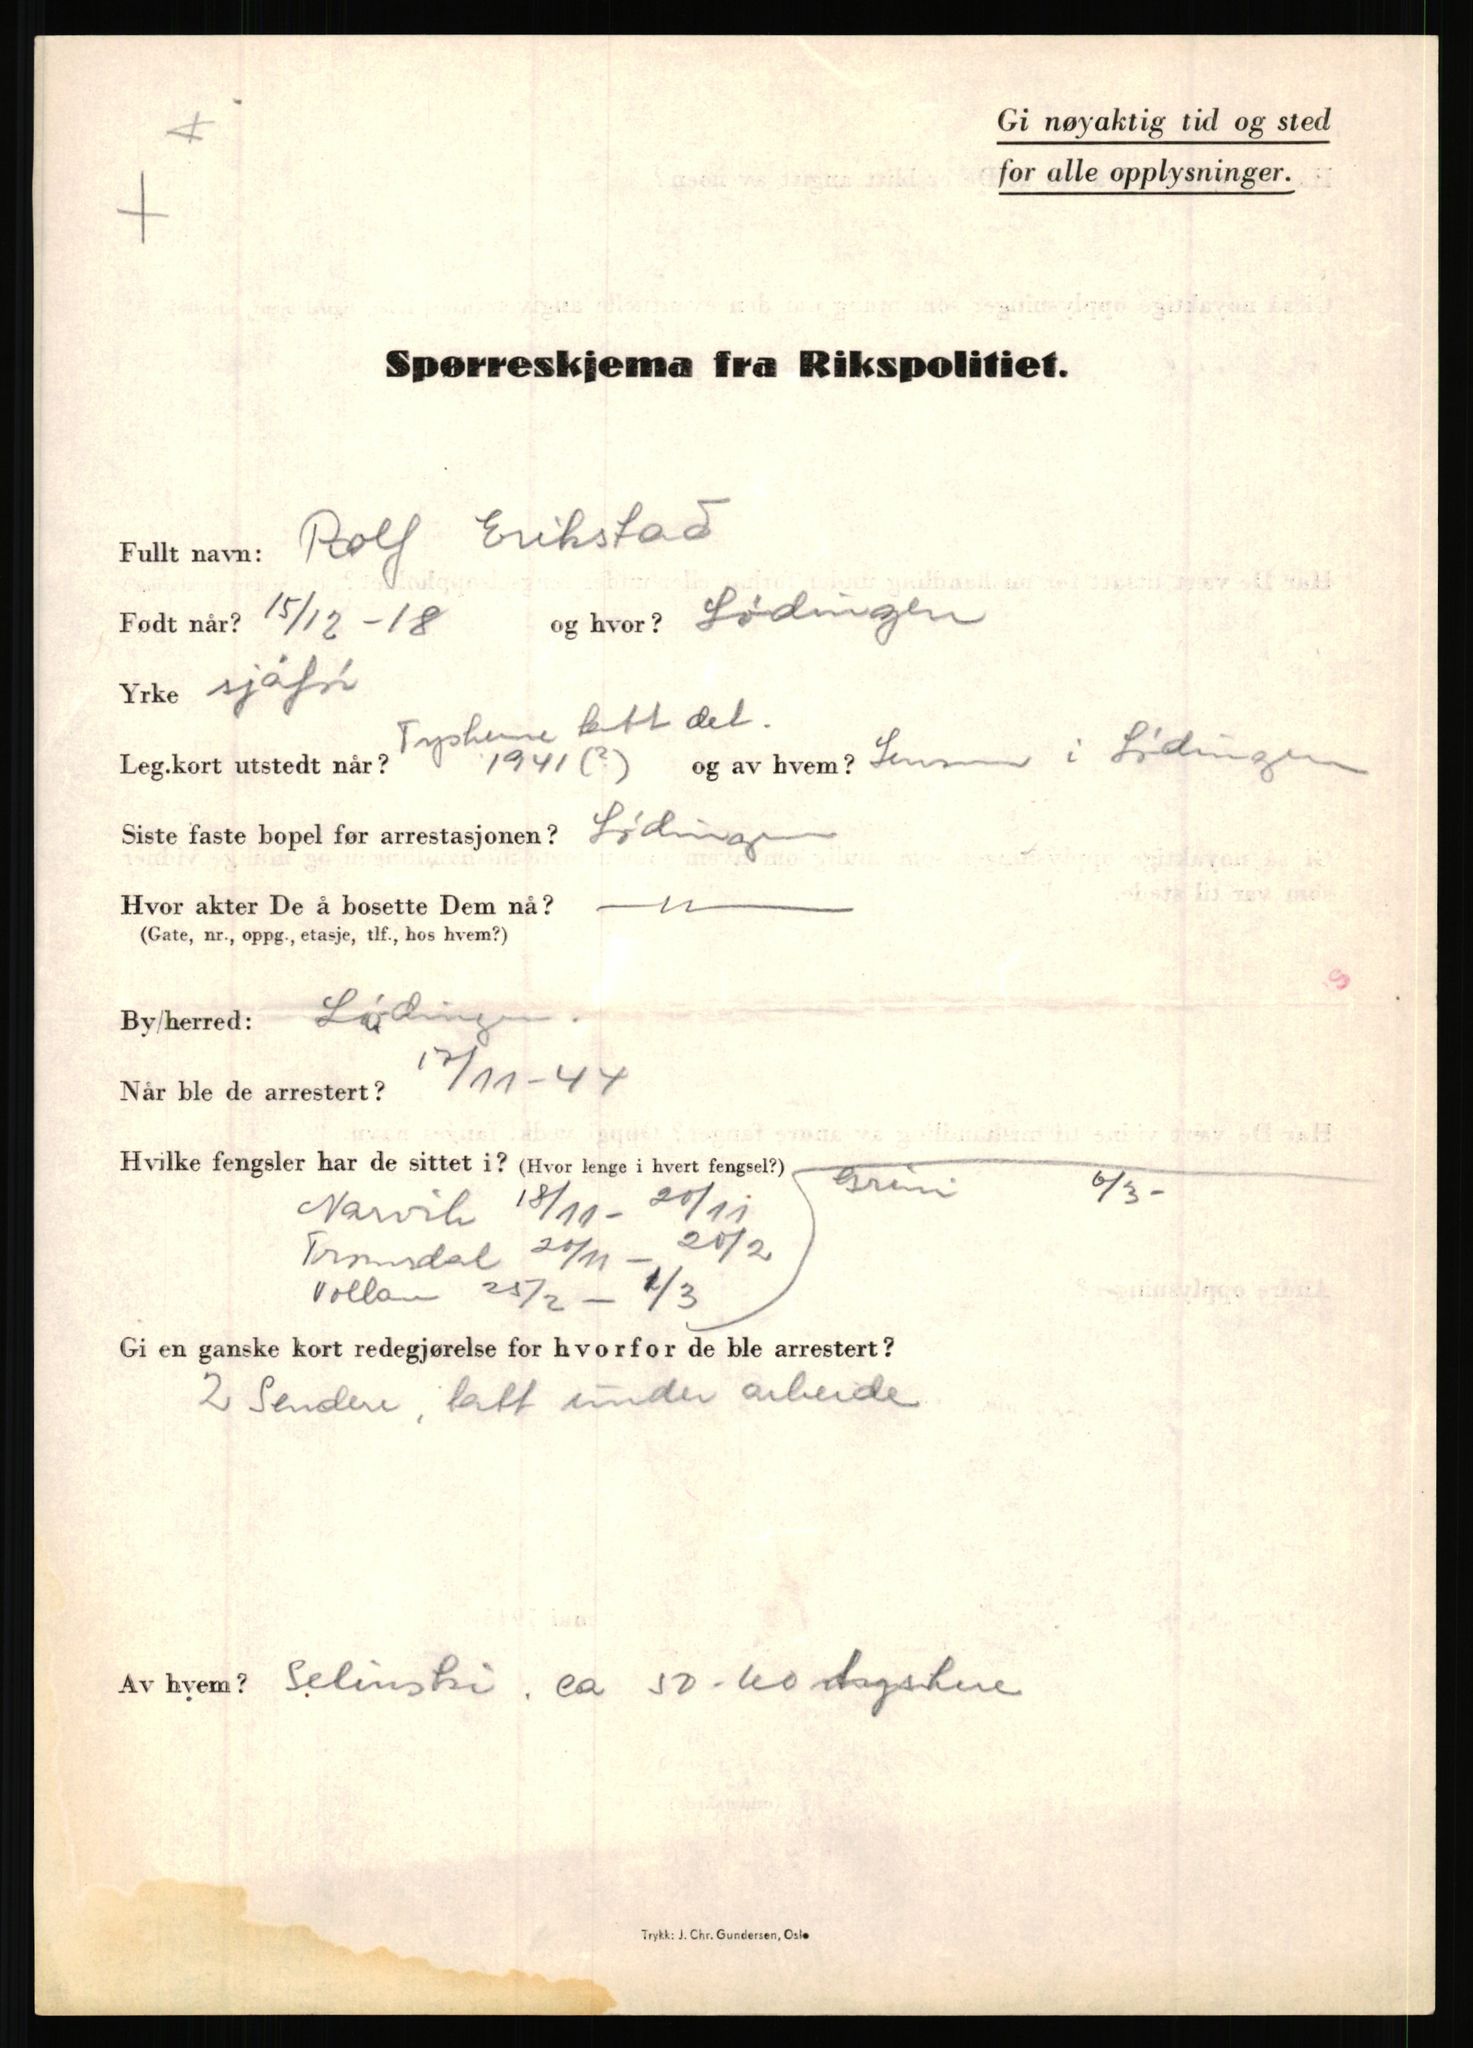 Gi nøyaktig tid og sted
for alle opplysninger.
Spørreskjema fra Rikspolitiet.
Fullt navn: Rolf Erikstad
Født når? 15/12-18 og hvor? Lødingen
Yrke sjåfør
Tyskerne tatt det.
Leg.kort utstedt når? 1941(?) og av hvem? i Lødingen
Siste faste bopel før arrestasjonen? Lødingen
Hvor akter De å bosette Dem nå? — " —
(Gate, nr., oppg., etasje, tlf., hos hvem?)
By/herred: Lødingen.
Når ble de arrestert? 17/11-44
Hvilke fengsler har de sittet i? (Hvor lenge i hvert fengsel?) Grini 6/3-
Narvik 18/11 - 20/11
Tromsdal 20/11 - 20/2
Vollan 25/2 - 1/3
Gi en ganske kort redegjørelse for hvorfor de ble arrestert?
2 Sendere, tatt under arbeide
Av hvem? Selinski. ca 50-60 tyskere
Trykk: J. Chr. Gundersen, Oslo